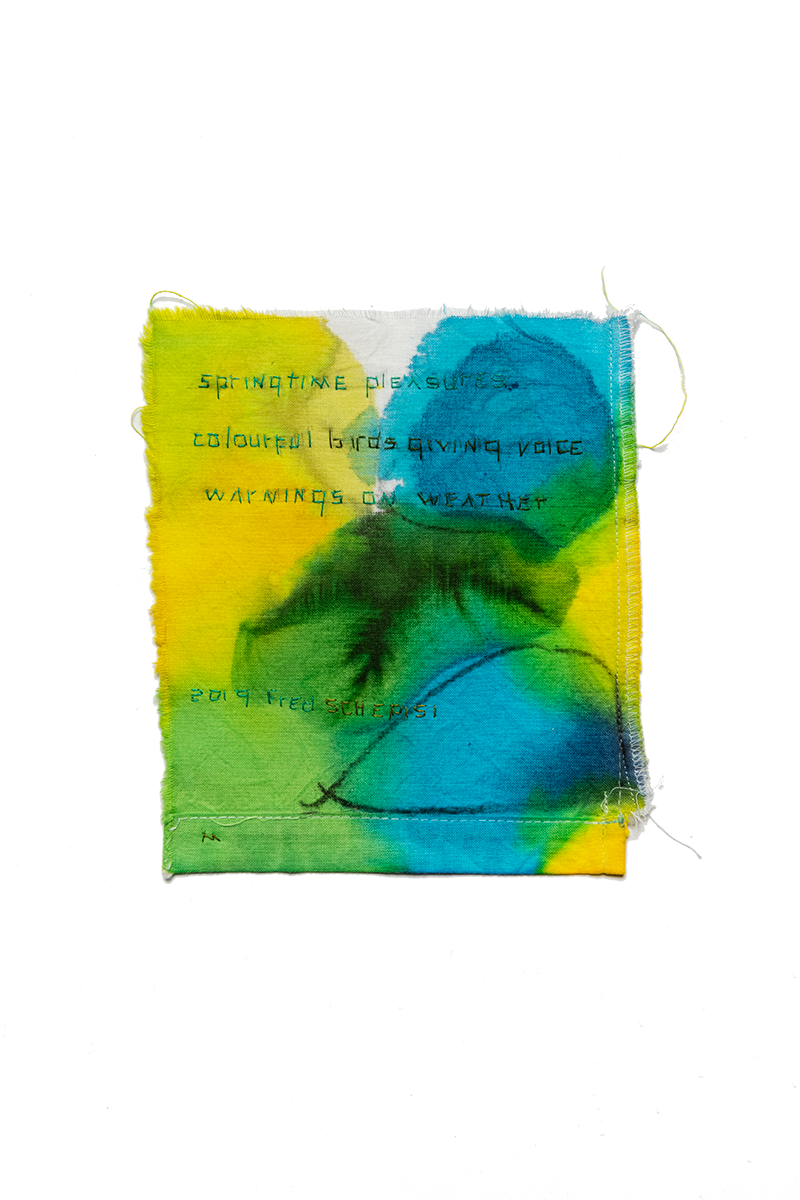 springtime pleasures.
colourful birds giving voice
warnings on weather
2019 Fred Schepisi